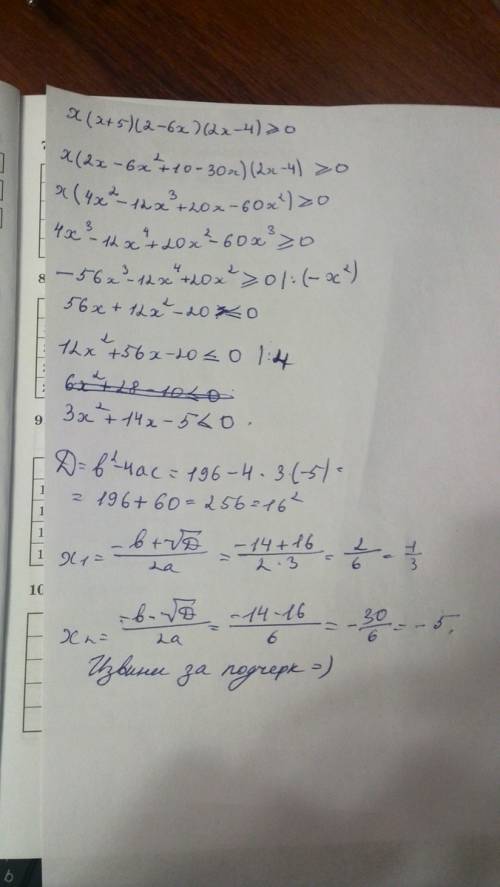 7
x(x+5)(2-6x)(2x-4)⩾0
x(2x-6x²+10-30x)(2x-4) ⩾0
x(4x²-12x³+20x-60x²)⩾0
4x³-12x⁴+20x²-60x³⩾0
8
-56x³-12x⁴+20x²⩾0 |:(-x²)
56x+12x²-20⩽0
12x²+56x-20⩽0 |:4
6x²+28-10⩽0
9
3x²+14x-5⩽0.
D=b²-4ac=196-4·3(-5)=
=196+60=256=16²
x₁= (-b+√D)/2a = (-14+16)/(2·3) = 2/6 = 1/3
10
x₂= (-b-√D)/2a = (-14-16)/6 = -30/6 = -5.
Извини за подчерк =)